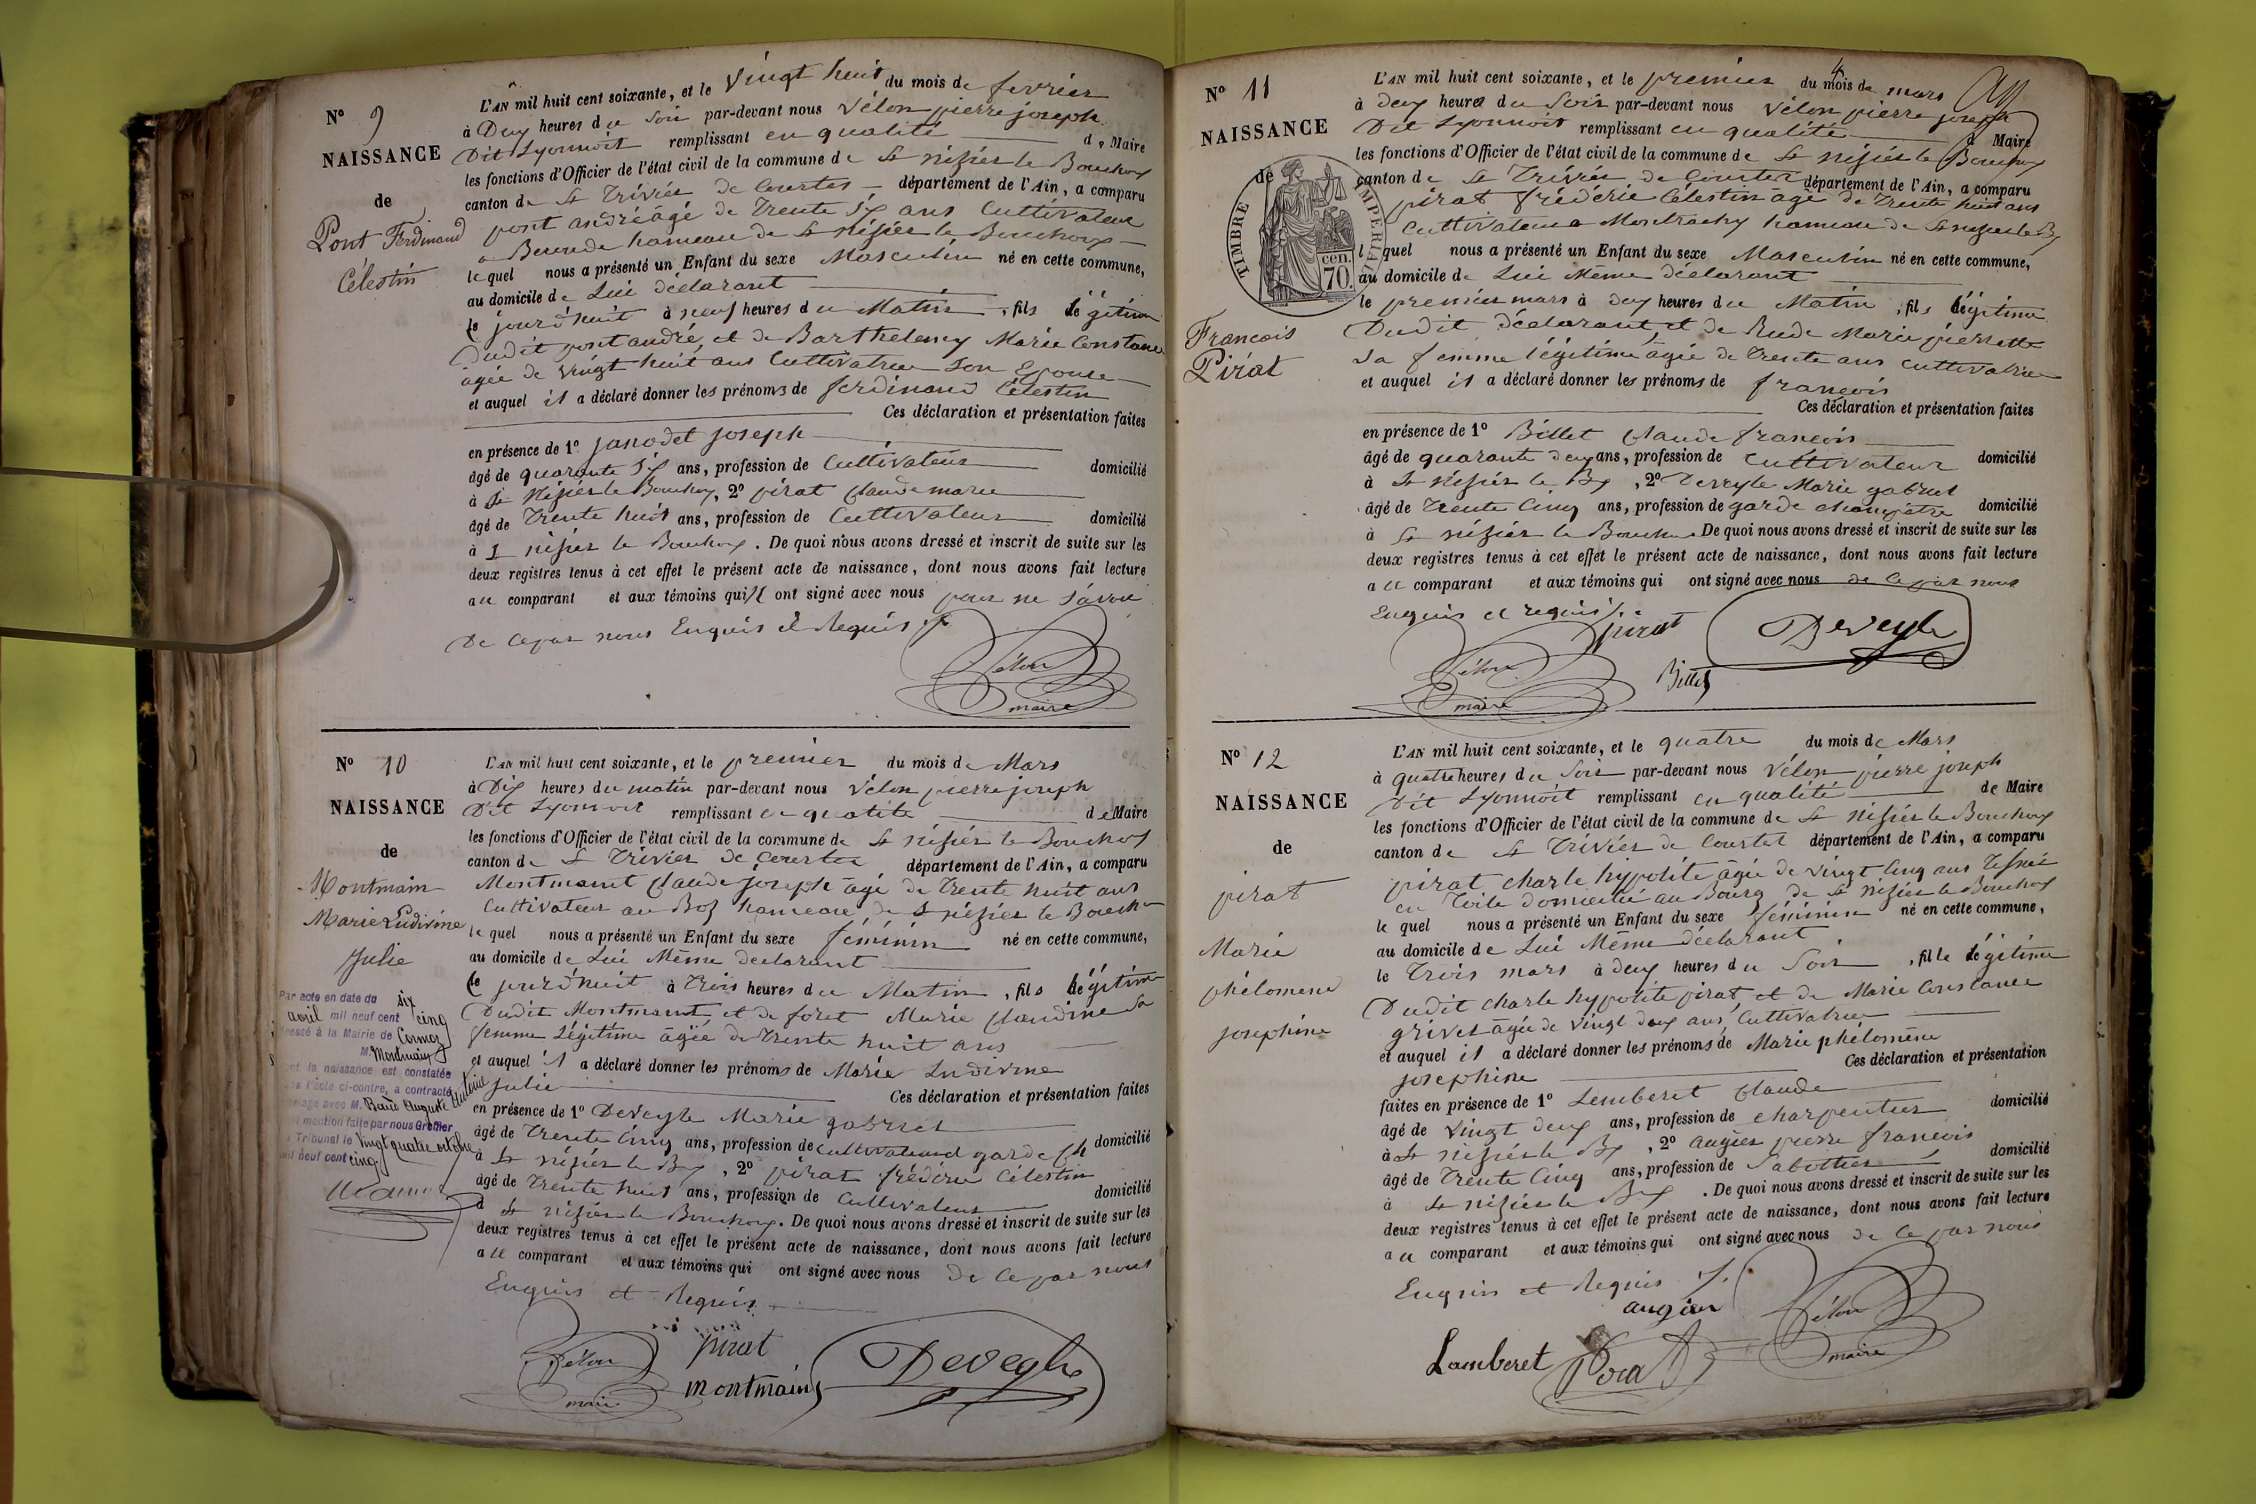 N° 9
NAISSANCE
de
Pont Ferdinand
Célestin
L'AN mil huit cent soixante, et le vingt huit du mois de fevrier
à Deux heures du Soir par-devant nous Vélon pierre joseph
Dit Lyonnoit remplissant en qualité de Maire
les fonctions d'Officier de l'état civil de la commune de St nisier le Bouchoux
canton de St Trivier de Courtes département de l'Ain, a comparu
pont andré âgé de Trente Six ans Cultivateur
a hameau de St nisier le Bouchoux
lequel nous a présenté un Enfant du sexe Masculin né en cette commune,
au domicile de Lui déclarant
le jourd'huit à neuf heures du Matin, fils légitime
Dudit pont andré, et de Barthelemy Marie Constance
âgée de vingt huit ans Cultivatrice Son Epouse
et auquel il a déclaré donner les prénoms de ferdinand Célestin
Ces déclaration et présentation faites
en présence de 1° janodet joseph
âgé de quarante Six ans, profession de Cultivateur domicilié
à St Nisier le Bouchoux, 2° pirat Claude marie
âgé de Trente huit ans, profession de Cultivateur domicilié
à St nisier le Bouchoux. De quoi nous avons dressé et inscrit de suite sur les
deux registres tenus à cet effet le présent acte de naissance, dont nous avons fait lecture
au comparant et aux témoins qui ont signé avec nous pour ne Savoir
De Ce par nous Enquis et Requis
Vélon
maire
N° 10
NAISSANCE
de
Montmain
Marie Ludivine
Julie
Par acte en date du six
avril mil neuf cent cinq
dressé à la Mairie de Cormoz
M. Montmain
dont la naissance est constatée
dans l'acte ci-contre, a contracté
mariage avec M. Baud Auguste
mention faite par nous Greffier
Tribunal le vingt quatre octobre
mil neuf cent cinq
L'AN mil huit cent soixante, et le premier du mois de Mars
à Dix heures du matin par-devant nous Vélon pierre joseph
Dit Lyonnoit remplissant en qualité de Maire
les fonctions d'Officier de l'état civil de la commune de St nisier le Bouchoux
canton de St Trivier de Courtes département de l'Ain, a comparu
Montmant Claude joseph âgé de Trente huit ans
Cultivateur au hameau de St nisier le Bouchoux
lequel nous a présenté un Enfant du sexe féminin né en cette commune,
au domicile de Lui Même declarant
le jourd'huit à Trois heures du Matin, fils légitime
Dudit Montmant, et de foret Marie Claudine Sa
femme Légitime âgée de Trente huit ans
et auquel il a déclaré donner les prénoms de Marie Ludivine
Julie Ces déclaration et présentation faites
en présence de 1° Deveyle Marie gabriel
âgé de Trente Cinq ans, profession de Cultivateur garde Ch domicilié
à St nisier le Bx, 2° pirat frédéric Célestin
âgé de Trente huit ans, profession de Cultivateur domicilié
à St nisier le Bouchoux. De quoi nous avons dressé et inscrit de suite sur les
deux registres tenus à cet effet le présent acte de naissance, dont nous avons fait lecture
au comparant et aux témoins qui ont signé avec nous de Ce par nous
Enquis et Requis
Vélon pirat
maire montmain Deveyle
N° 11
NAISSANCE
de
TIMBRE IMPERIAL
70. cen.
Francois
Pirat
L'AN mil huit cent soixante, et le premier du mois de mars
à deux heures du Soir par-devant nous Vélon pierre joseph
Dit Lyonnoit remplissant en qualité de Maire
les fonctions d'Officier de l'état civil de la commune de St nisier le Bouchoux
canton de St Trivier de Courtes département de l'Ain, a comparu
pirat frédéric Célestin âgé de Trente huit ans
Cultivateur a Montrachy hameau de St nisier le Bx
lequel nous a présenté un Enfant du sexe Masculin né en cette commune,
au domicile de Lui Même déclarant
le premier mars à deux heures du Matin, fils légitime
Dudit déclarant, et de Rude Marie pierrette
Sa femme légitime âgée de Trente ans cultivatrice
et auquel il a déclaré donner les prénoms de françois
Ces déclaration et présentation faites
en présence de 1° Billet Claude françois
âgé de quarante deux ans, profession de Cultivateur domicilié
à St nisier le Bx, 2° Deveyle Marie gabriel
âgé de Trente Cinq ans, profession de garde champêtre domicilié
à St nisier le Bouchoux De quoi nous avons dressé et inscrit de suite sur les
deux registres tenus à cet effet le présent acte de naissance, dont nous avons fait lecture
au comparant et aux témoins qui ont signé avec nous de Ce par nous
Enquis et requis
pirat Deveyle
Vélon Billet
maire
N° 12
NAISSANCE
de
pirat
Marie
phélomene
josephine
L'AN mil huit cent soixante, et le quatre du mois de Mars
à quatre heures du Soir par-devant nous Vélon pierre joseph
Dit Lyonnoit remplissant en qualité de Maire
les fonctions d'Officier de l'état civil de la commune de St nisier le Bouchoux
canton de St Trivier de Courtes département de l'Ain, a comparu
pirat charle hypolite âgé de vingt Cinq ans Tisserer
en Toile domicilié au Bourg de St nisier le Bouchoux
lequel nous a présenté un Enfant du sexe féminin né en cette commune,
au domicile de Lui Même déclarant
le Trois mars à deux heures du Soir, fille légitime
Dudit charle hypolite pirat, et de Marie Constance
grivet âgée de vingt deux ans, Cultivatrice
et auquel il a déclaré donner les prénoms de Marie phélomène
josephine Ces déclaration et présentation
faites en présence de 1° Lemberet Claude
âgé de vingt deux ans, profession de charpentier domicilié
à St nisier le Bx, 2° augier pierre francois
âgé de Trente Cinq ans, profession de Sabottier domicilié
à St nisier le Bx. De quoi nous avons dressé et inscrit de suite sur les
deux registres tenus à cet effet le présent acte de naissance, dont nous avons fait lecture
au comparant et aux témoins qui ont signé avec nous de Ce par nous
Enquis et Requis
augier Vélon
Lamberet Pirat maire